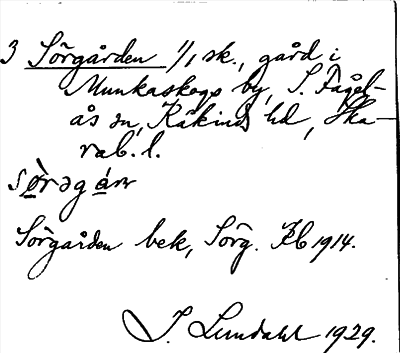 3 Sörgården 1/1 sk., gård i
Munkaskogs by, S. Fågel-
ås sn, Kåkinds hd, Ska-
rab. l.
Sörgården bek, Sörg. Kb 1914.
I. Lundahl 1929.